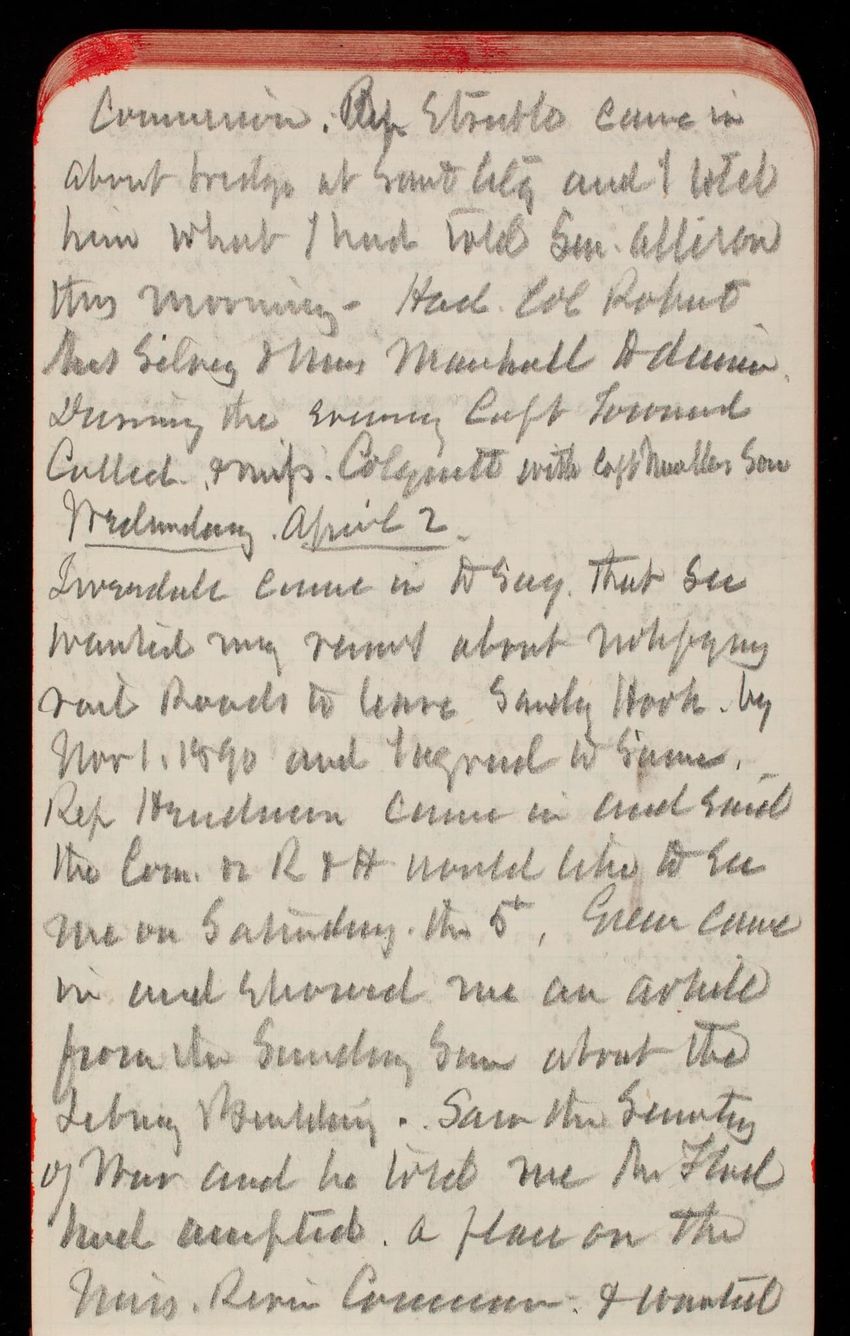 Commission. Rep Struble came in
about bridge at Sioux City and I told
him what I had told Sen. Allison
this morning - Had Col Robert
Mrs Gilvey & Miss Marshall to dinner.
During the evening Capt Townsend
Called. & Miss. Colquitt with Capt Son
Wednesday. April 2.
came in to say. that Sec
wanted my views about notifying
rail Roads to leave Sandy Hook. by
Nov 1. 1890 and I agreed to same.
Rep Henderson came in and said
the Com. on R & H would like to see
me on Saturday. the 5t, Green came
in and showed me an article
from the Sunday Sun about the
Library Building. . Saw the Secretary
of War and he told me Mr Flad
had accepted. a place on the
Miss. River Common. & wanted